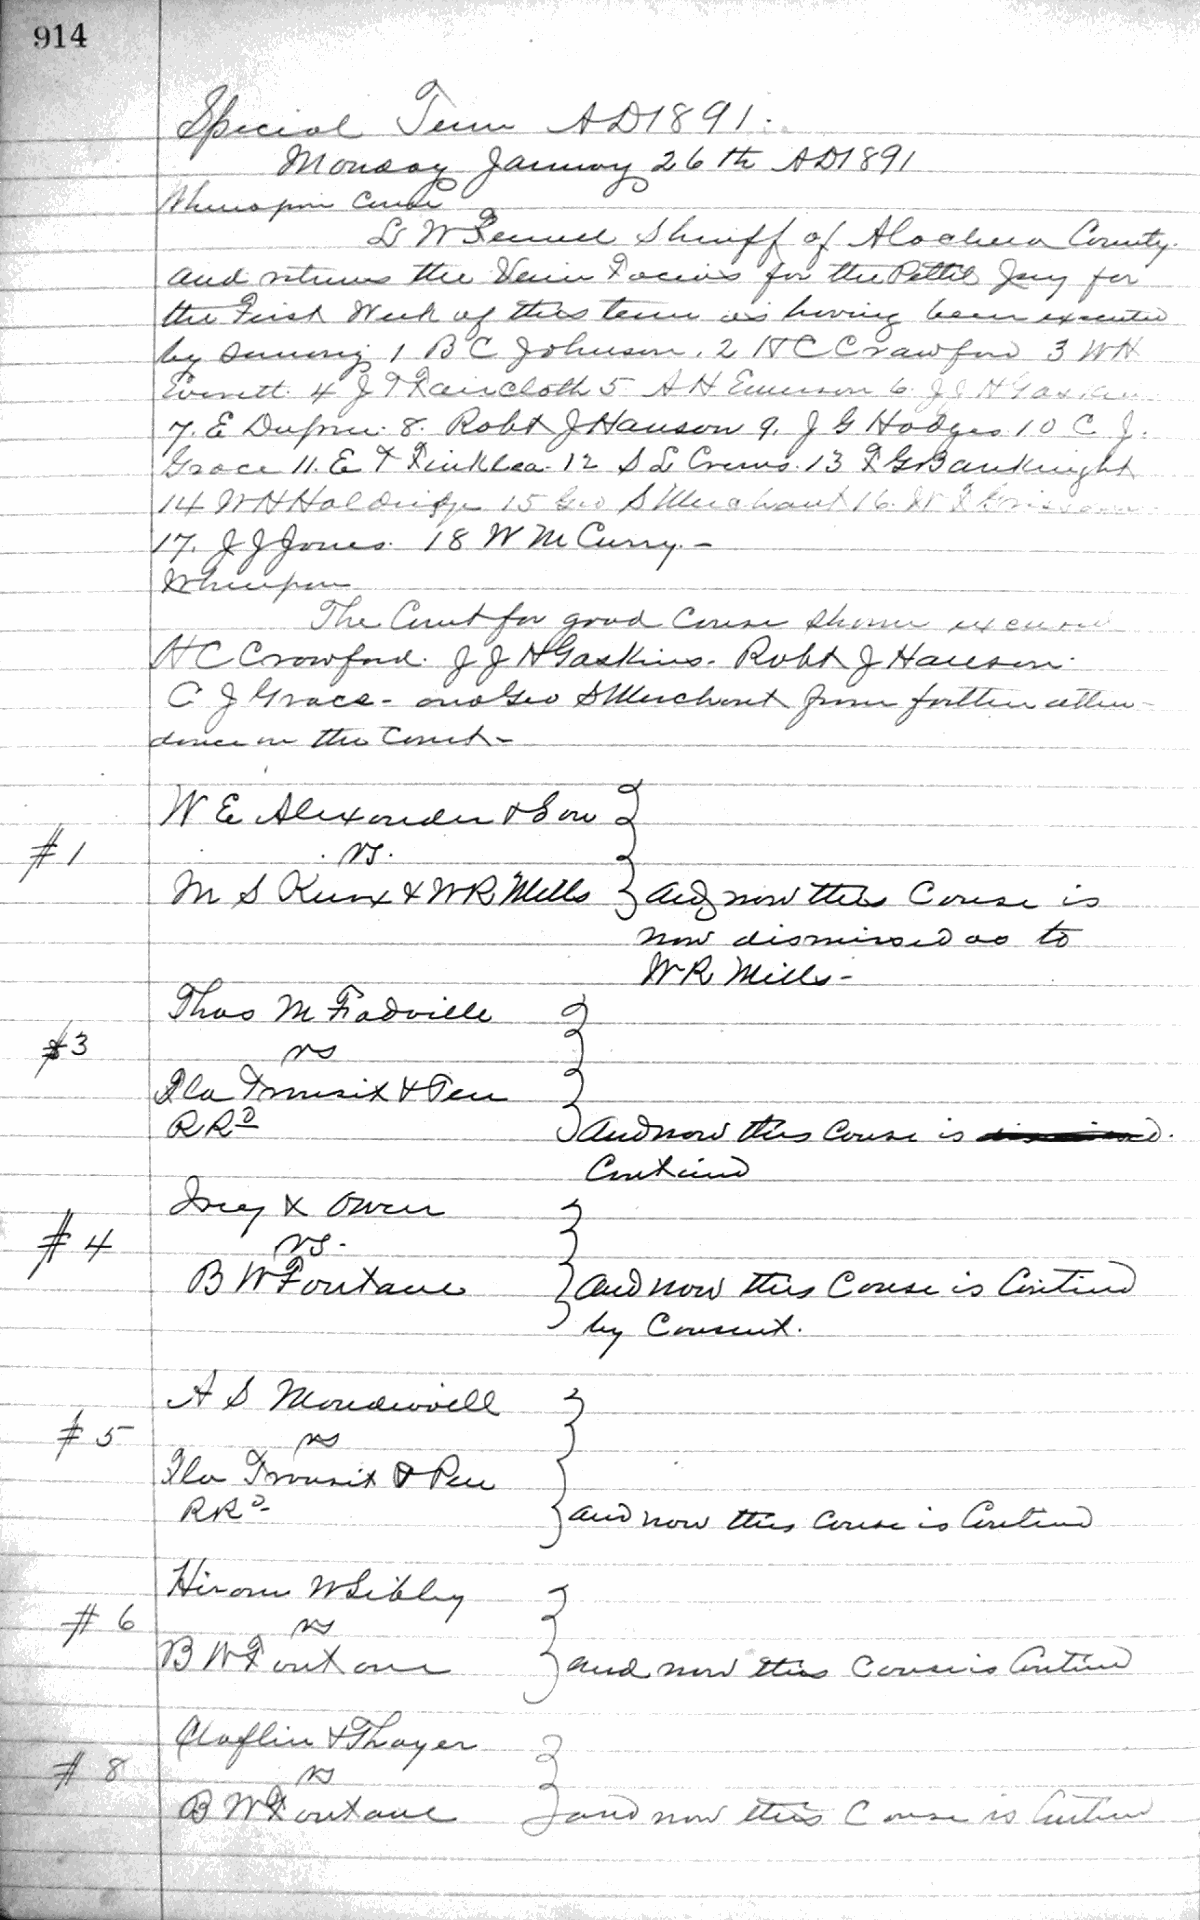 914
Special Term AD 1891.
Monday January 26th AD 1891
Whereupon came
L W Fennell Sheriff of Alachua County
and returns the Venire Facias for the Pettit Jury for
the First Week of this term as having been executed
by serving 1 B C Johnson. 2 H C Crawford 3 W H
Everett. 4 J T Faircloth 5 A H Emerson 6. J J H Gaskins
7. E Dupree. 8. Robt J Hanson 9. J G Hodges 10 C J.
Grace 11. E T Finklea. 12 S L Crews. 13 F G Bauknight
14 W H Holdridge 15 Geo S Merchant 16.
17. J J Jones. 18 W McCurry. -
Whereupon
The Court for good Cause shown excused
H C Crawford. J J H Gaskins. Robt J Hanson.
C J Grace - and Geo S Merchant from further atten-
dance on the Court -
W E Alexander & Son
#1
vs.
M S Knox & W R Mills } And now this Cause is
now dismissed as to
W R Mills -
Thos M
#3
vs
Fla Transit & Pen
R Rd } And now this Cause is dismissed.
Continued
Ivey & Owen
#4
vs.
B W Fontane } And now this Cause is Contined
by Consent.
A S
#5
vs
Fla Transit & Pen
R Rd } and now this Cause is Contined
Hiram W Sibley
#6
vs
B W Fontane } and now this Cause is Contined
Claflin & Thayer
#8
vs
B W Fontane } and now this Cause is Contined